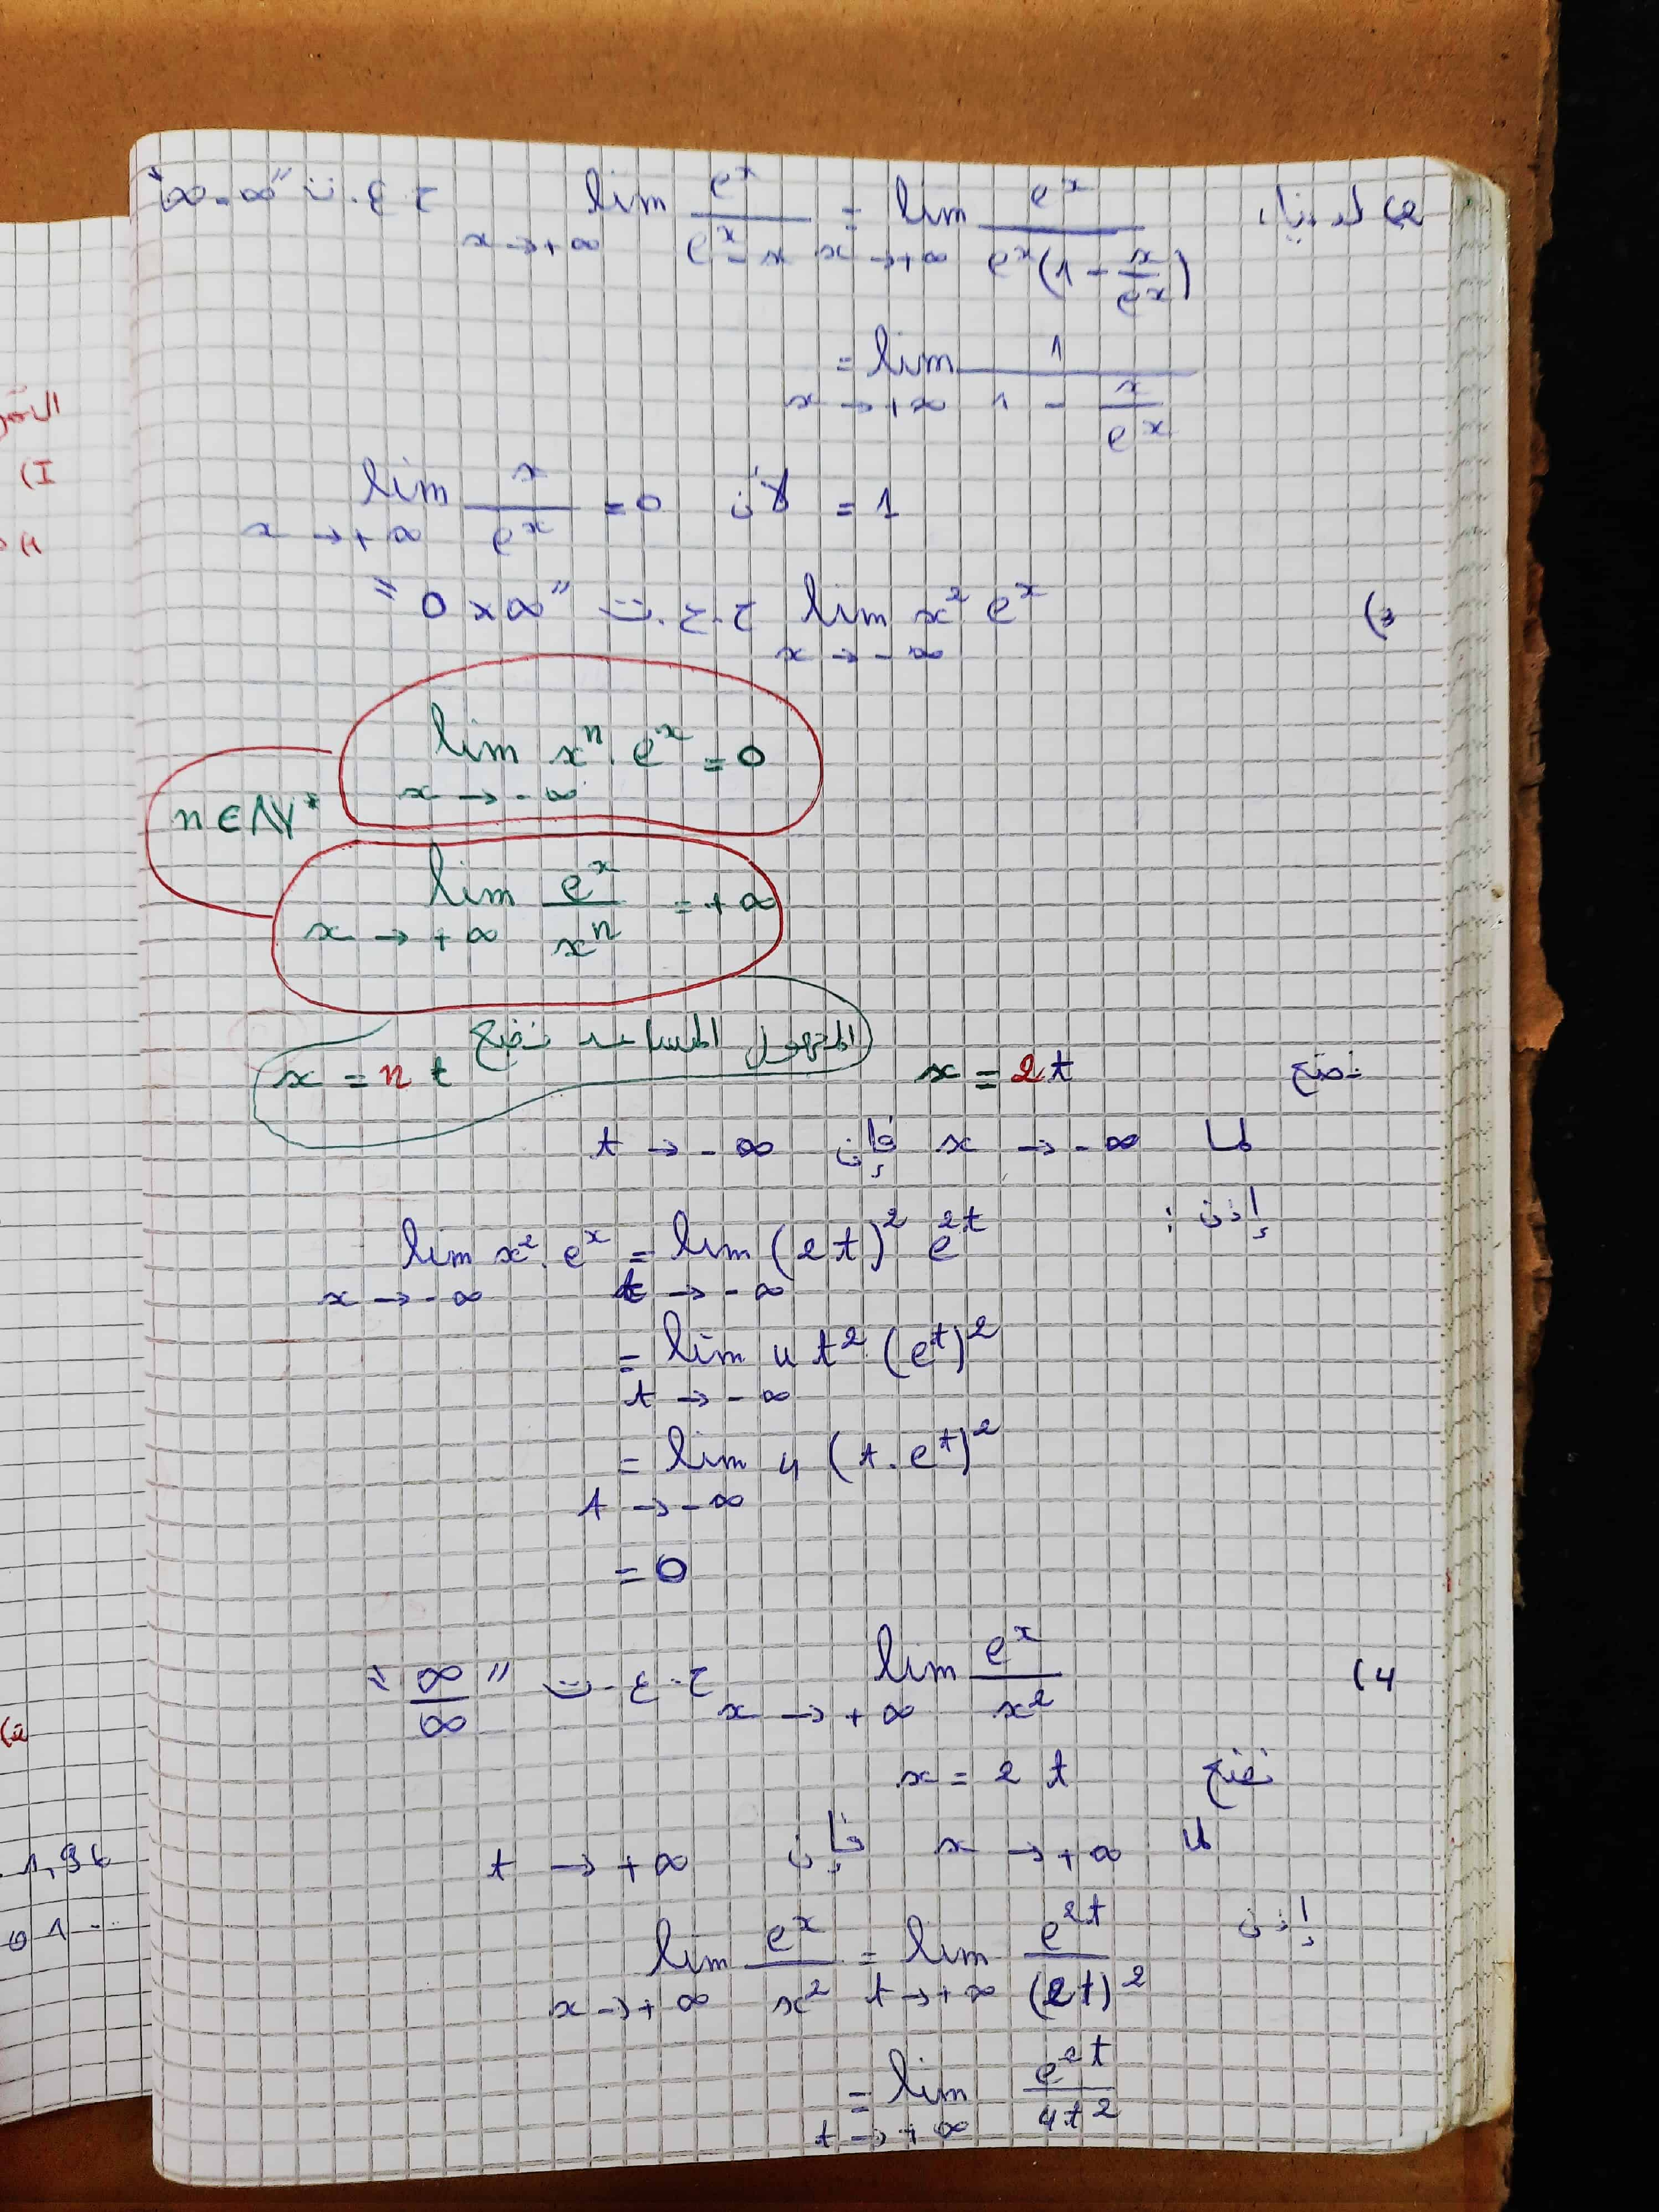 2) لدينا: lim x→+∞ e^x/(e^x - x) = lim x→+∞ e^x/(e^x(1 - x/e^x)) ح.ع.ت "∞-∞"
= lim x→+∞ 1/(1 - x/e^x)
= 1 لأن lim x→+∞ x/e^x = 0
3) lim x→-∞ x² e^x ح.ع.ت "0×∞"
lim x→-∞ x^n . e^x = 0
n∈ℕ*
lim x→+∞ e^x/x^n = +∞
المجهول المساعد نضع
x = n t
نضع x = 2t
لما x → -∞ فإن t → -∞
إذن :
lim x→-∞ x². e^x = lim t→-∞ (2t)² e^2t
= lim t→-∞ 4 t² (e^t)²
= lim t→-∞ 4 (t. e^t)²
= 0
4) lim x→+∞ e^x/x² ح.ع.ت "∞/∞"
نضع x = 2 t
لما x → +∞ فإن t → +∞
إذن lim x→+∞ e^x/x² = lim t→+∞ e^2t/(2t)²
= lim t→+∞ e^2t/4t²
I)
1,96